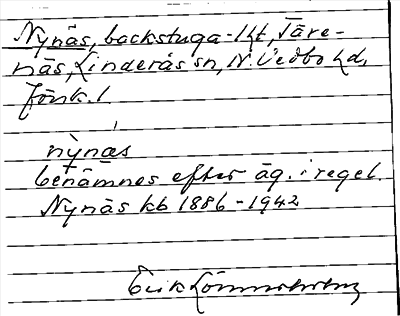 Nynäs, backstuga-lht, Täre-
näs, Linderås sn, N. Vedbo hd,
Jönk. l.
nỳnæs
benämnes efter äg. i regel.
Nynäs kb 1886-1942
Erik